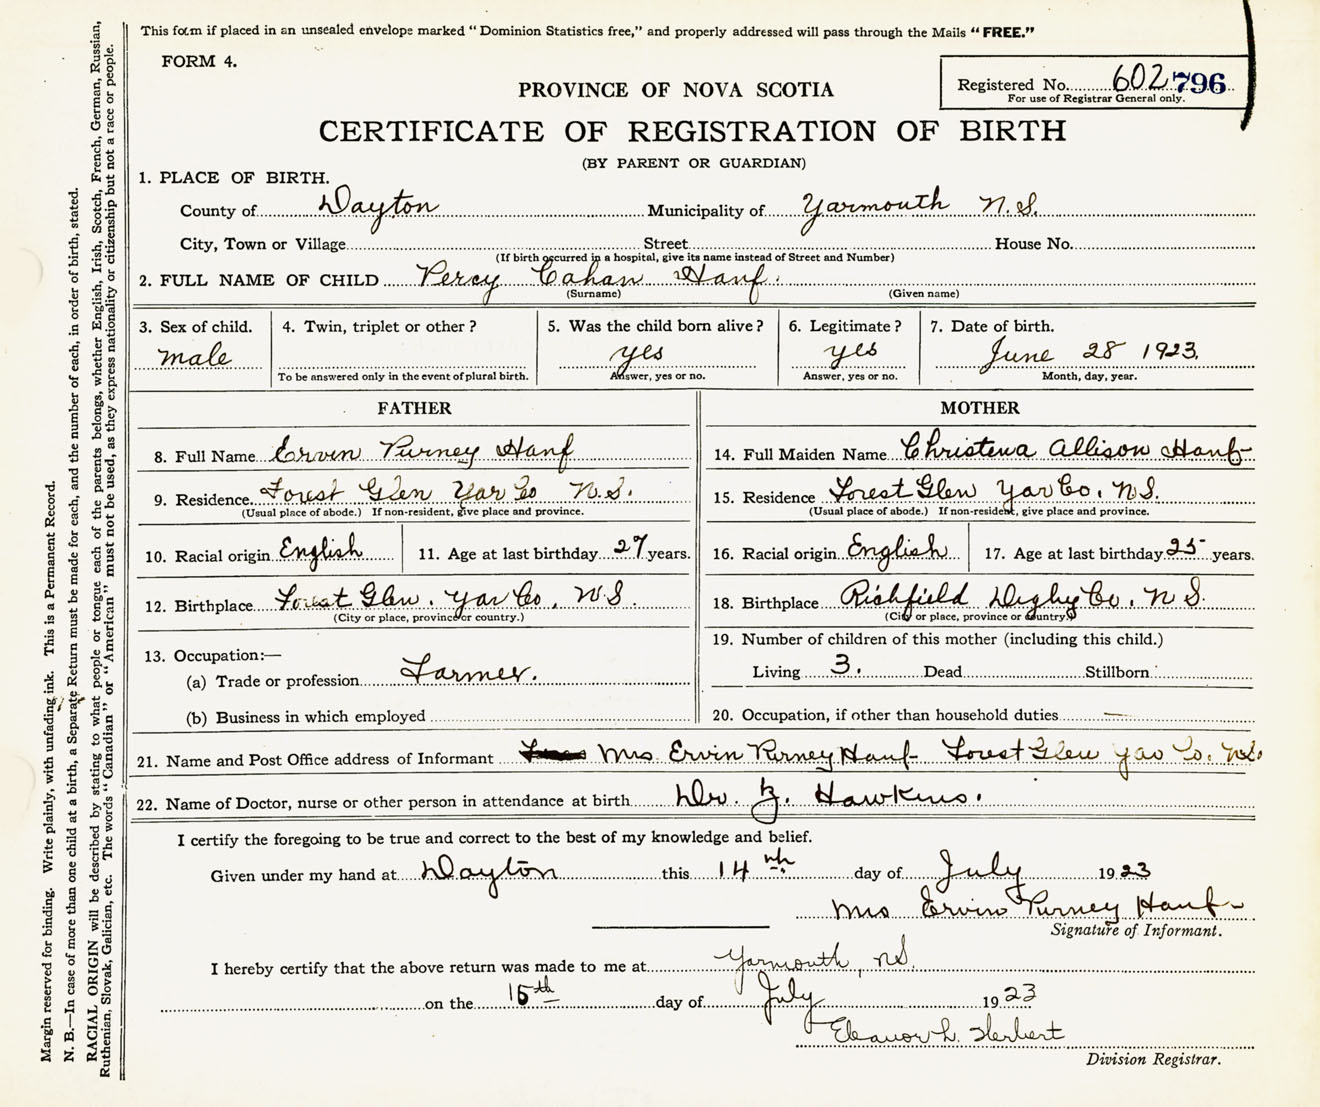 This form if placed in an unsealed envelope marked "Dominion Statistics free," and properly addressed will pass through the Mails "FREE."
FORM 4.
Registered No. 602796
For use of Registrar General only.
PROVINCE OF NOVA SCOTIA
CERTIFICATE OF REGISTRATION OF BIRTH
(BY PARENT OR GUARDIAN)
1. PLACE OF BIRTH.
County of Dayton Municipality of Yarmouth N.S.
City, Town or Village Street House No.
(If birth occurred in a hospital, give its name instead of Street and Number)
2. FULL NAME OF CHILD Percy Cahan Hanf.
(Surname) (Given name)
3. Sex of child. 4. Twin, triplet or other? 5. Was the child born alive? 6. Legitimate? 7. Date of birth.
male yes yes June 28 1923.
To be answered only in the event of plural birth. Answer, yes or no. Answer, yes or no. Month, day, year.
FATHER
8. Full Name Ervin Purney Hanf
9. Residence Forest Glen Yar Co N.S.
(Usual place of abode.) If non-resident, give place and province.
10. Racial origin English 11. Age at last birthday 27 years.
12. Birthplace Forest Glen, Yar Co, N.S.
(City or place, province or country.)
13. Occupation:—
(a) Trade or profession Farmer.
(b) Business in which employed
MOTHER
14. Full Maiden Name Christena Allison Hanf
15. Residence Forest Glen Yar Co. N.S.
(Usual place of abode.) If non-resident, give place and province.
16. Racial origin English 17. Age at last birthday 25 years.
18. Birthplace Richfield Digby Co. N S.
(City or place, province or country.)
19. Number of children of this mother (including this child.)
Living 3. Dead Stillborn
20. Occupation, if other than household duties —
21. Name and Post Office address of Informant Mrs. Ervin Purney Hanf Forest Glen Yar Co. N.S.
22. Name of Doctor, nurse or other person in attendance at birth Dr. Z. Hawkins.
I certify the foregoing to be true and correct to the best of my knowledge and belief.
Given under my hand at Dayton this 14 th day of July 1923
Mrs Ervin Purney Hanf
Signature of Informant.
I hereby certify that the above return was made to me at Yarmouth, N.S.
on the 15th day of July 1923
Eleanor L. Herbert
Division Registrar.
Margin reserved for binding. Write plainly, with unfading ink. This is a Permanent Record.
N. B.—In case of more than one child at a birth, a Separate Return must be made for each, and the number of each, in order of birth, stated.
RACIAL ORIGIN will be described by stating to what people or tongue each of the parents belongs, whether English, Irish, Scotch, French, German, Russian,
Ruthenian, Slovak, Galician, etc. The words "Canadian" or "American" must not be used, as they express nationality or citizenship but not a race or people.